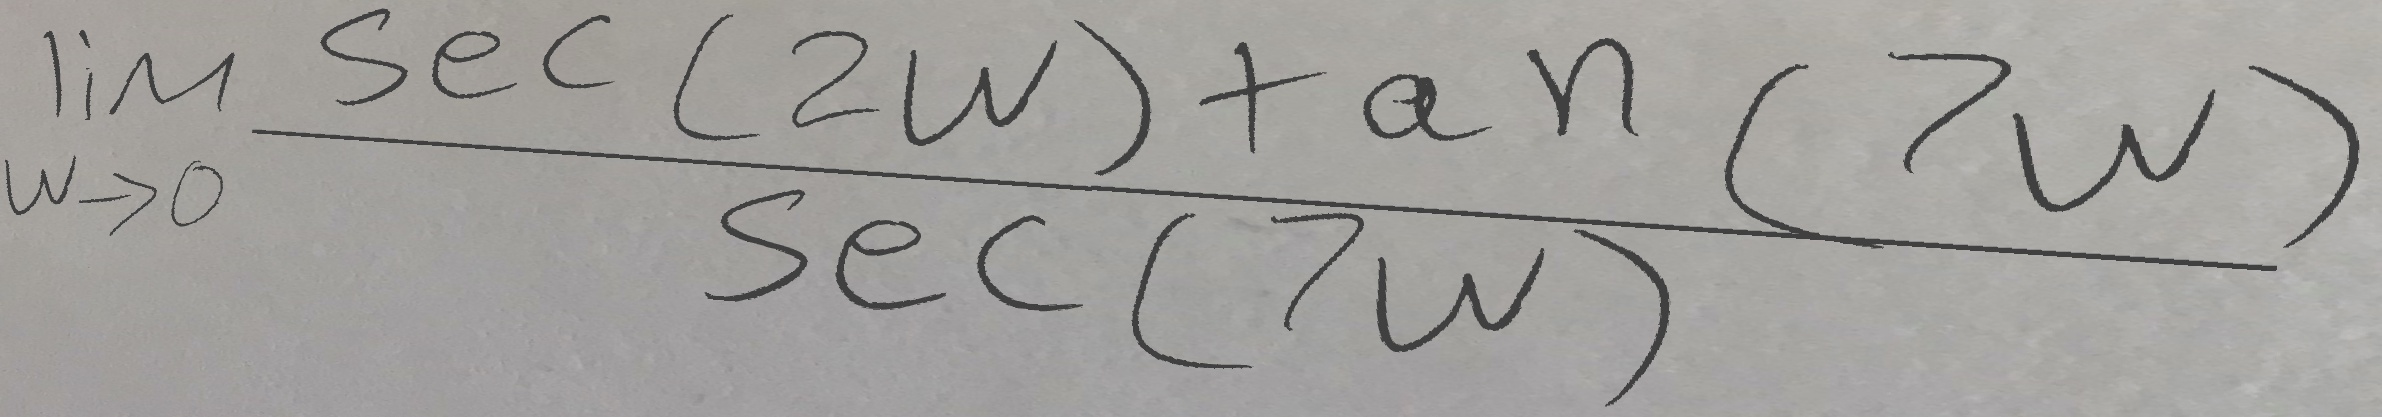 lim sec(2w)tan(7w)
w→0 sec(7w)